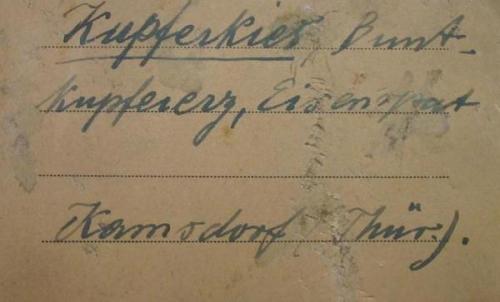 Kupferkies, Bunt-
kupfererz, Eisenspat
Kamsdorf (Thür.).